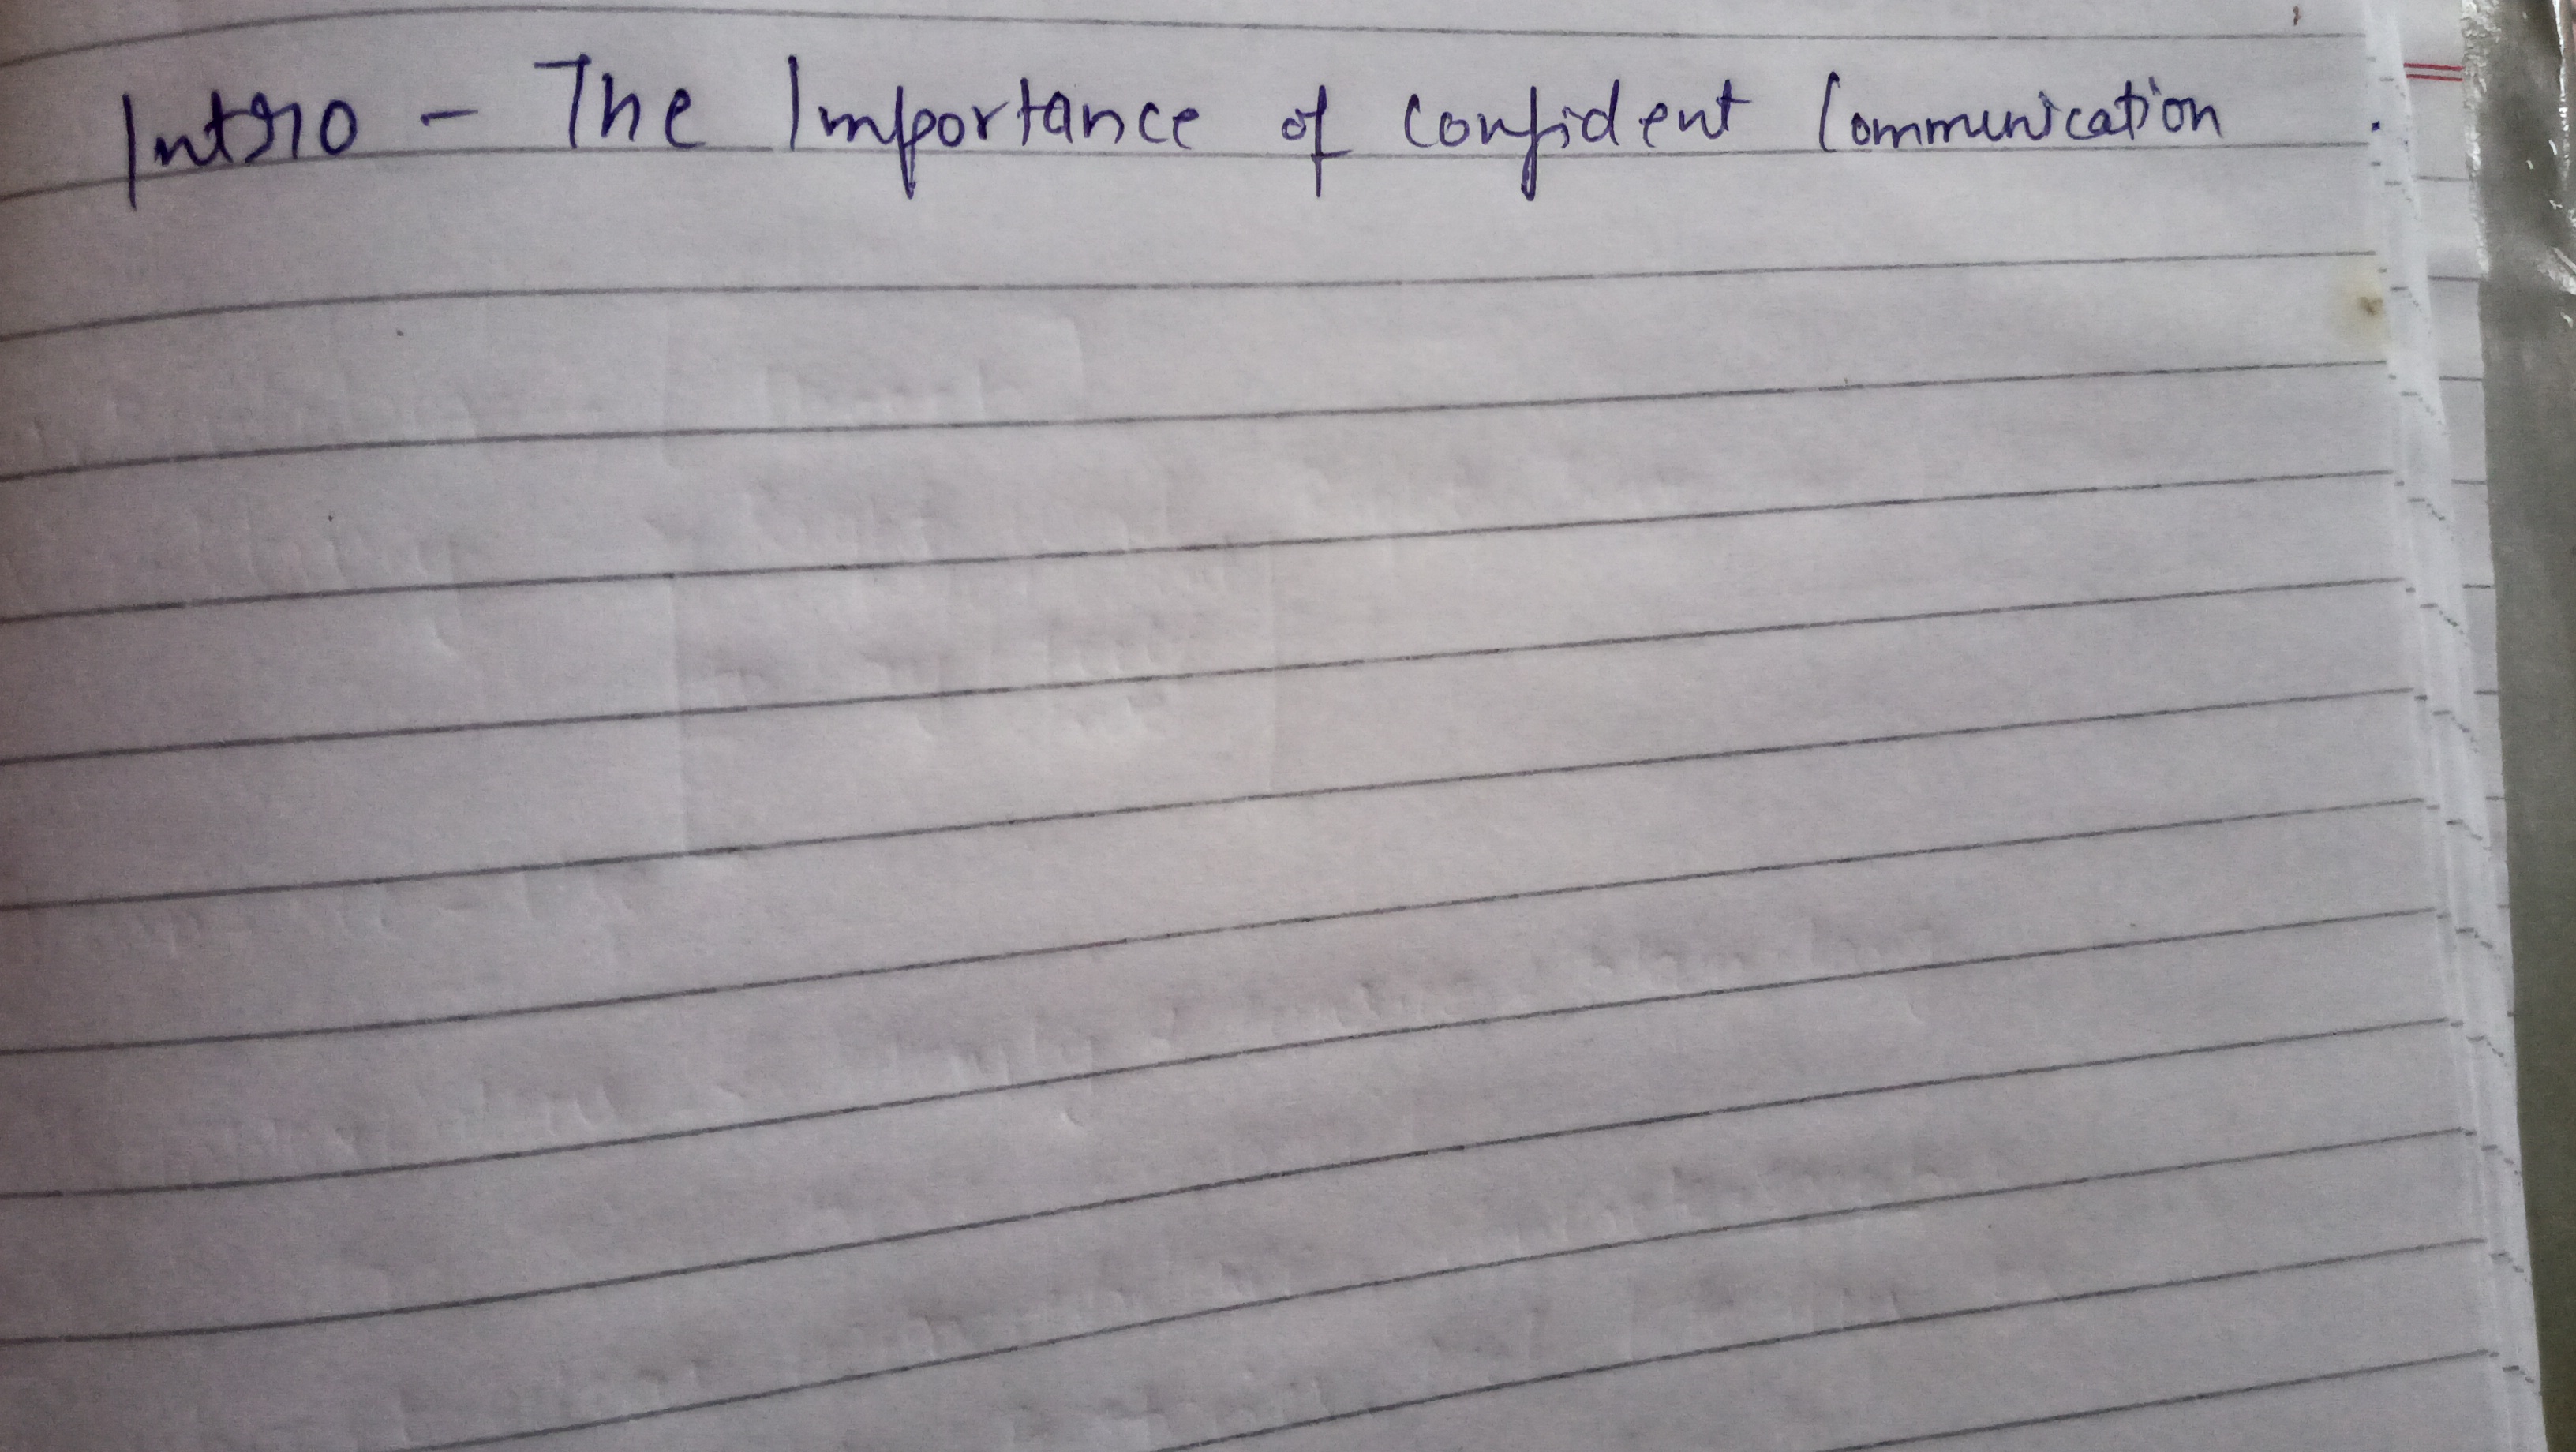 Intro - The Importance of confident Communication .